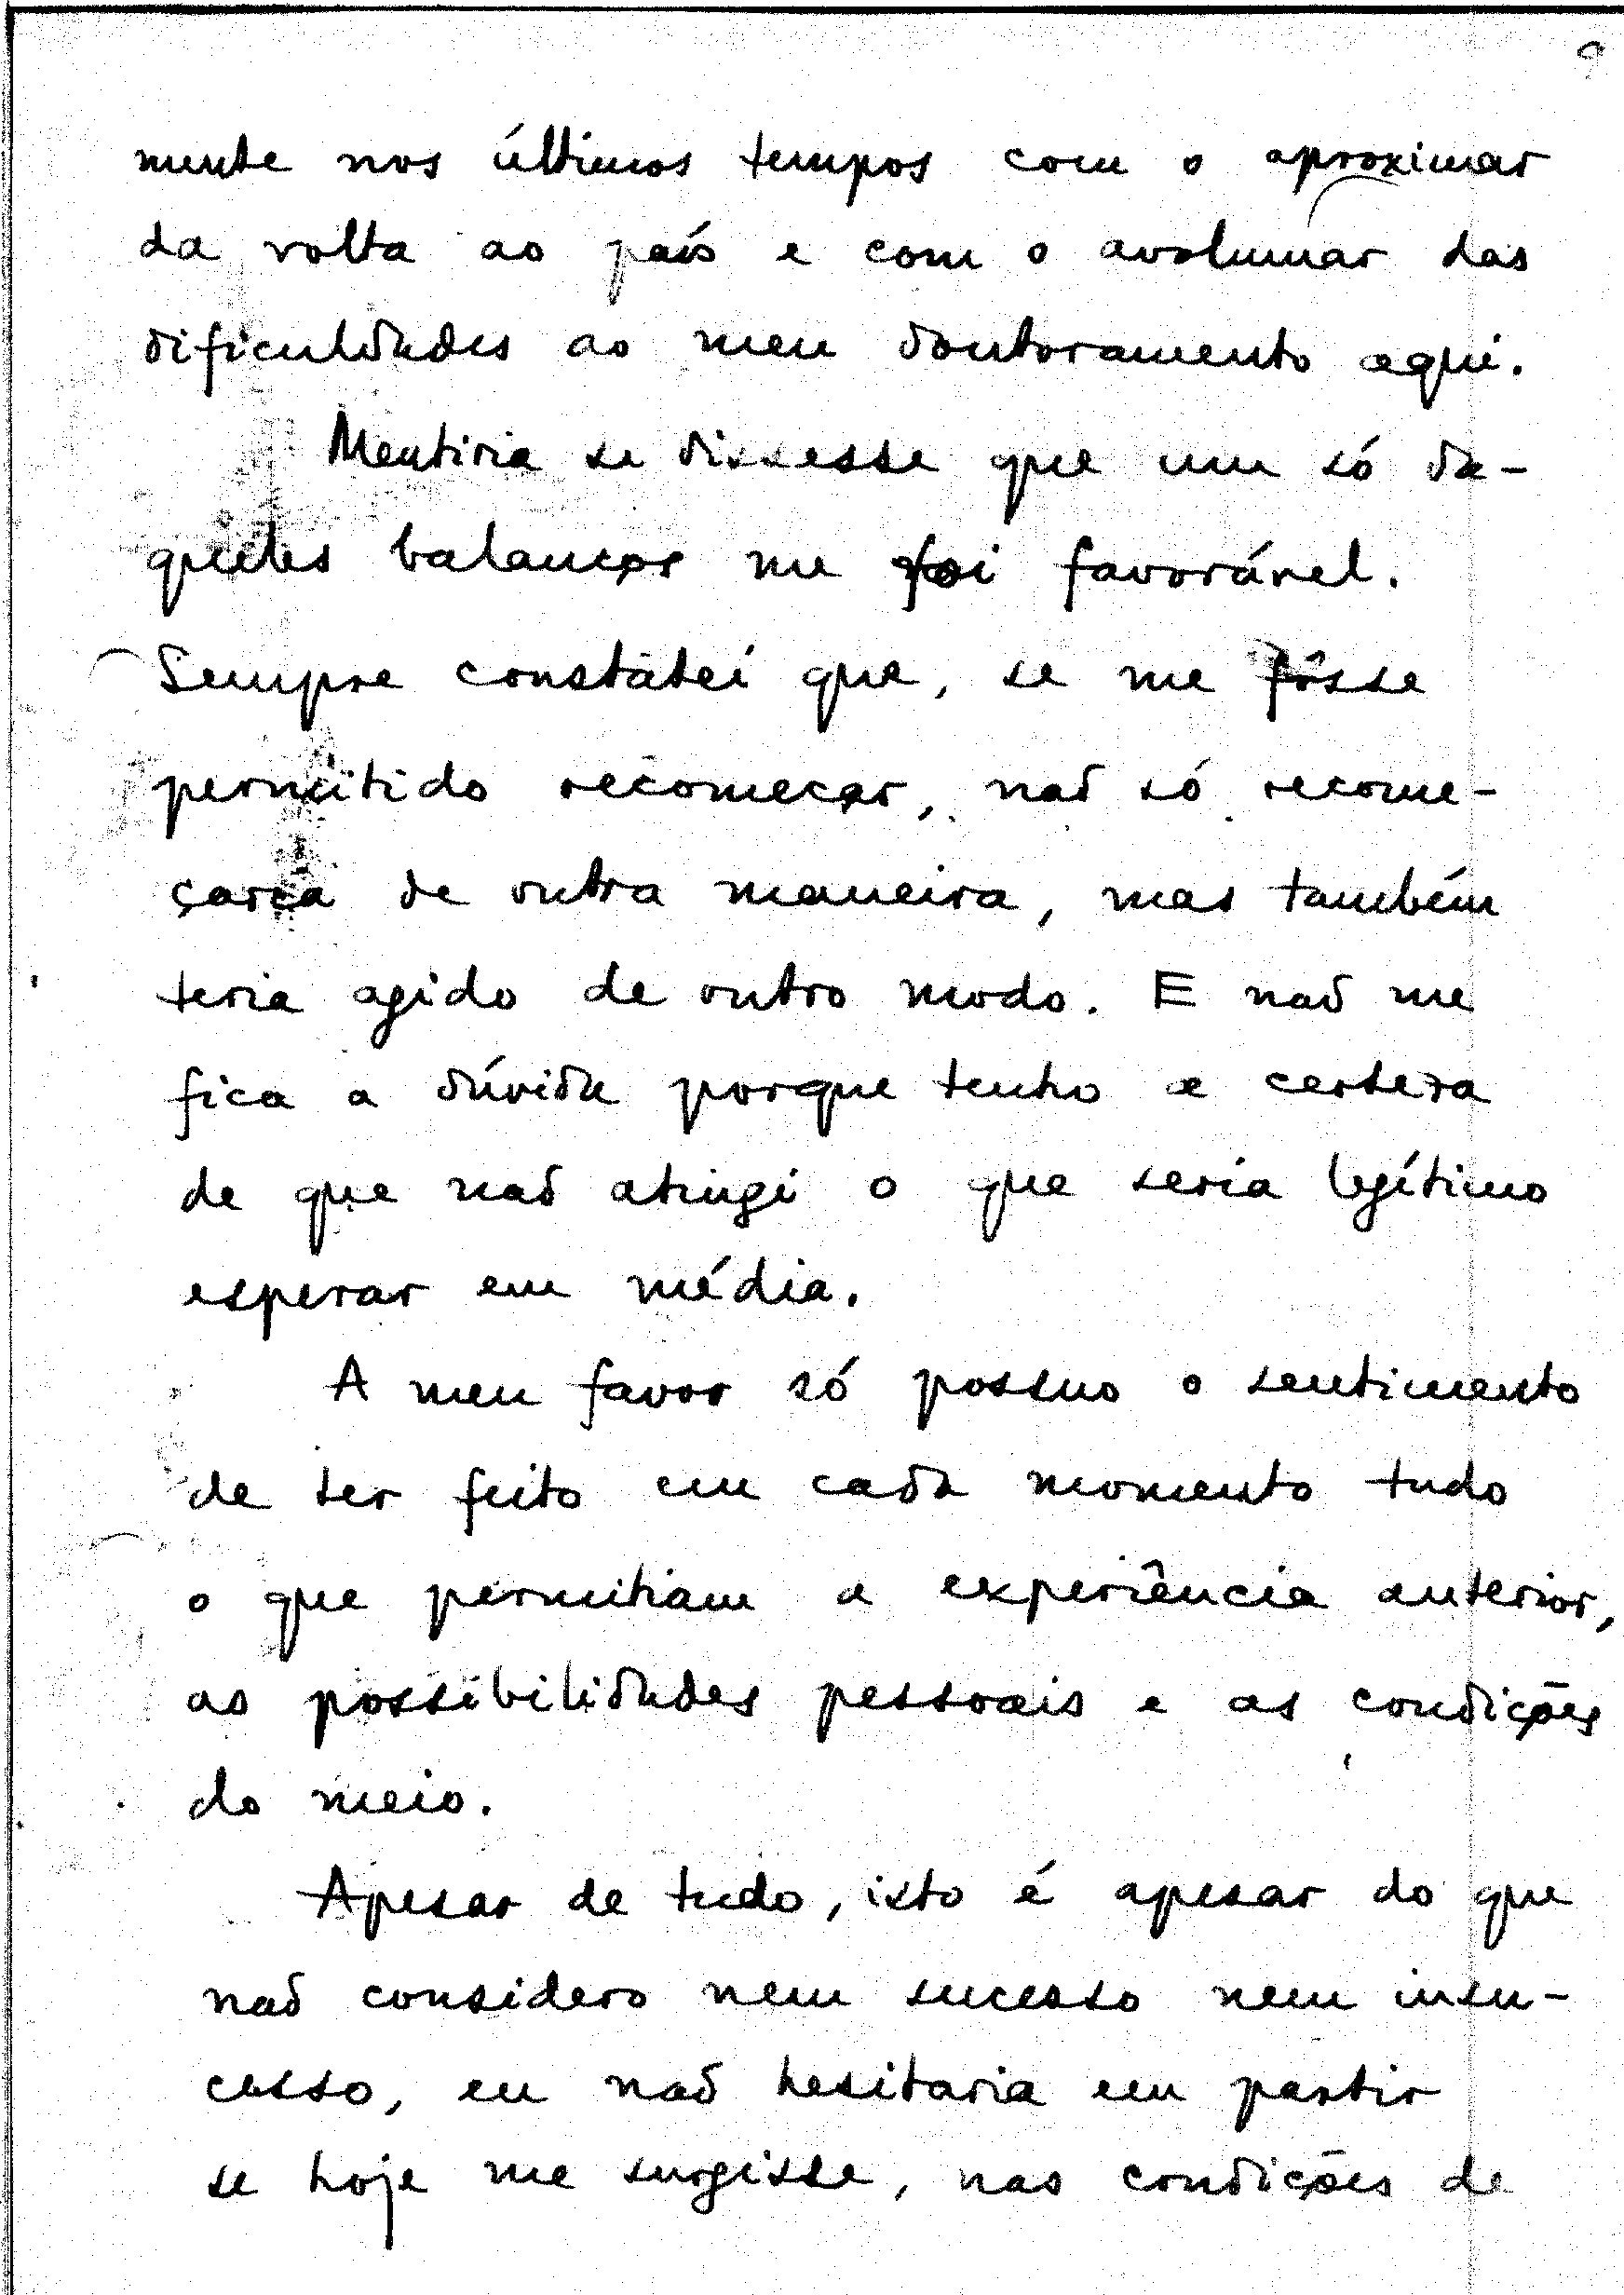 9
mente nos últimos tempos com o aproximar
da volta ao país e com o avolumar das
dificuldades ao meu doutoramento aqui.
Mentiria se dissesse que um só da-
queles balanços me foi favorável.
Sempre constatei que, se me fôsse
permitido recomeçar, não só recome-
çaria de outra maneira, mas também
teria agido de outro modo. E não me
fica a dúvida porque tenho a certeza
de que não atingi o que seria legítimo
esperar em média.
A meu favor só possuo o sentimento
de ter feito em cada momento tudo
o que permitiam a experiência anterior,
as possibilidades pessoais e as condições
do meio.
Apesar de tudo, isto é apesar do que
não considero nem sucesso nem insu-
cesso, eu não hesitaria em partir
se hoje me surgisse, nas condições de